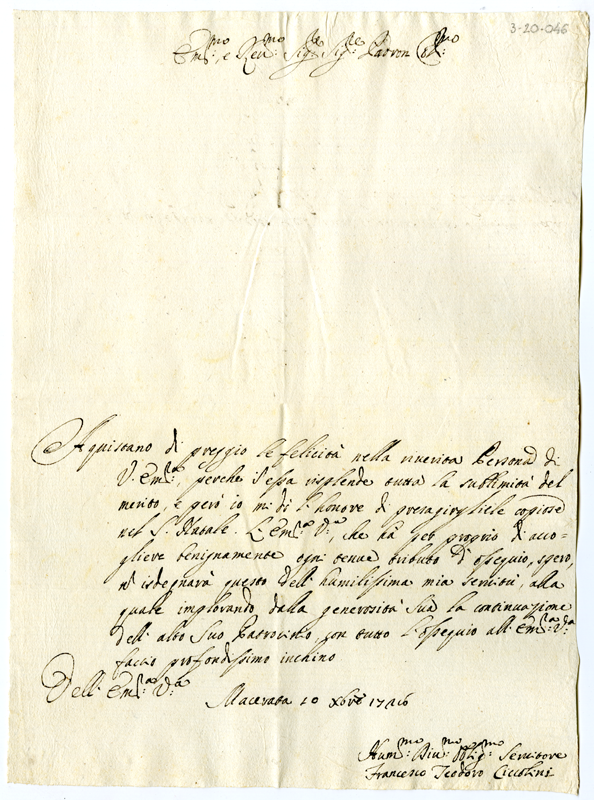 3-20-046
Em.mo, e Reu.mo Sig.re Sig.re Padron Col.mo
Aquistano di preggio le felicità nella riuerita Persona di
V. Em.za, perche s'essa risplende tutta la sublimità del
merito, e però io mi dò l'honore di presagirgliele copiose
nel S. Natale. L'Em.za V.ra, che hà per proprio di acco-
gliere benignamente ogni tenue tributo d'ossequio, spero,
nò isdegnarà questo dell'humilissima mia seruitù, alla
quale implorando dalla generosità Sua la continuazione
dell'alto Suo Patrocinio, con tutto l'ossequio all'Em.za V.ra
faccio profondissimo inchino
Dell'Em.za V.ra
Macerata 10 Xbre 1726
Hum.mo Diu.mo Oblig.mo Seruitore
Francesco Teodoro Ciccolini